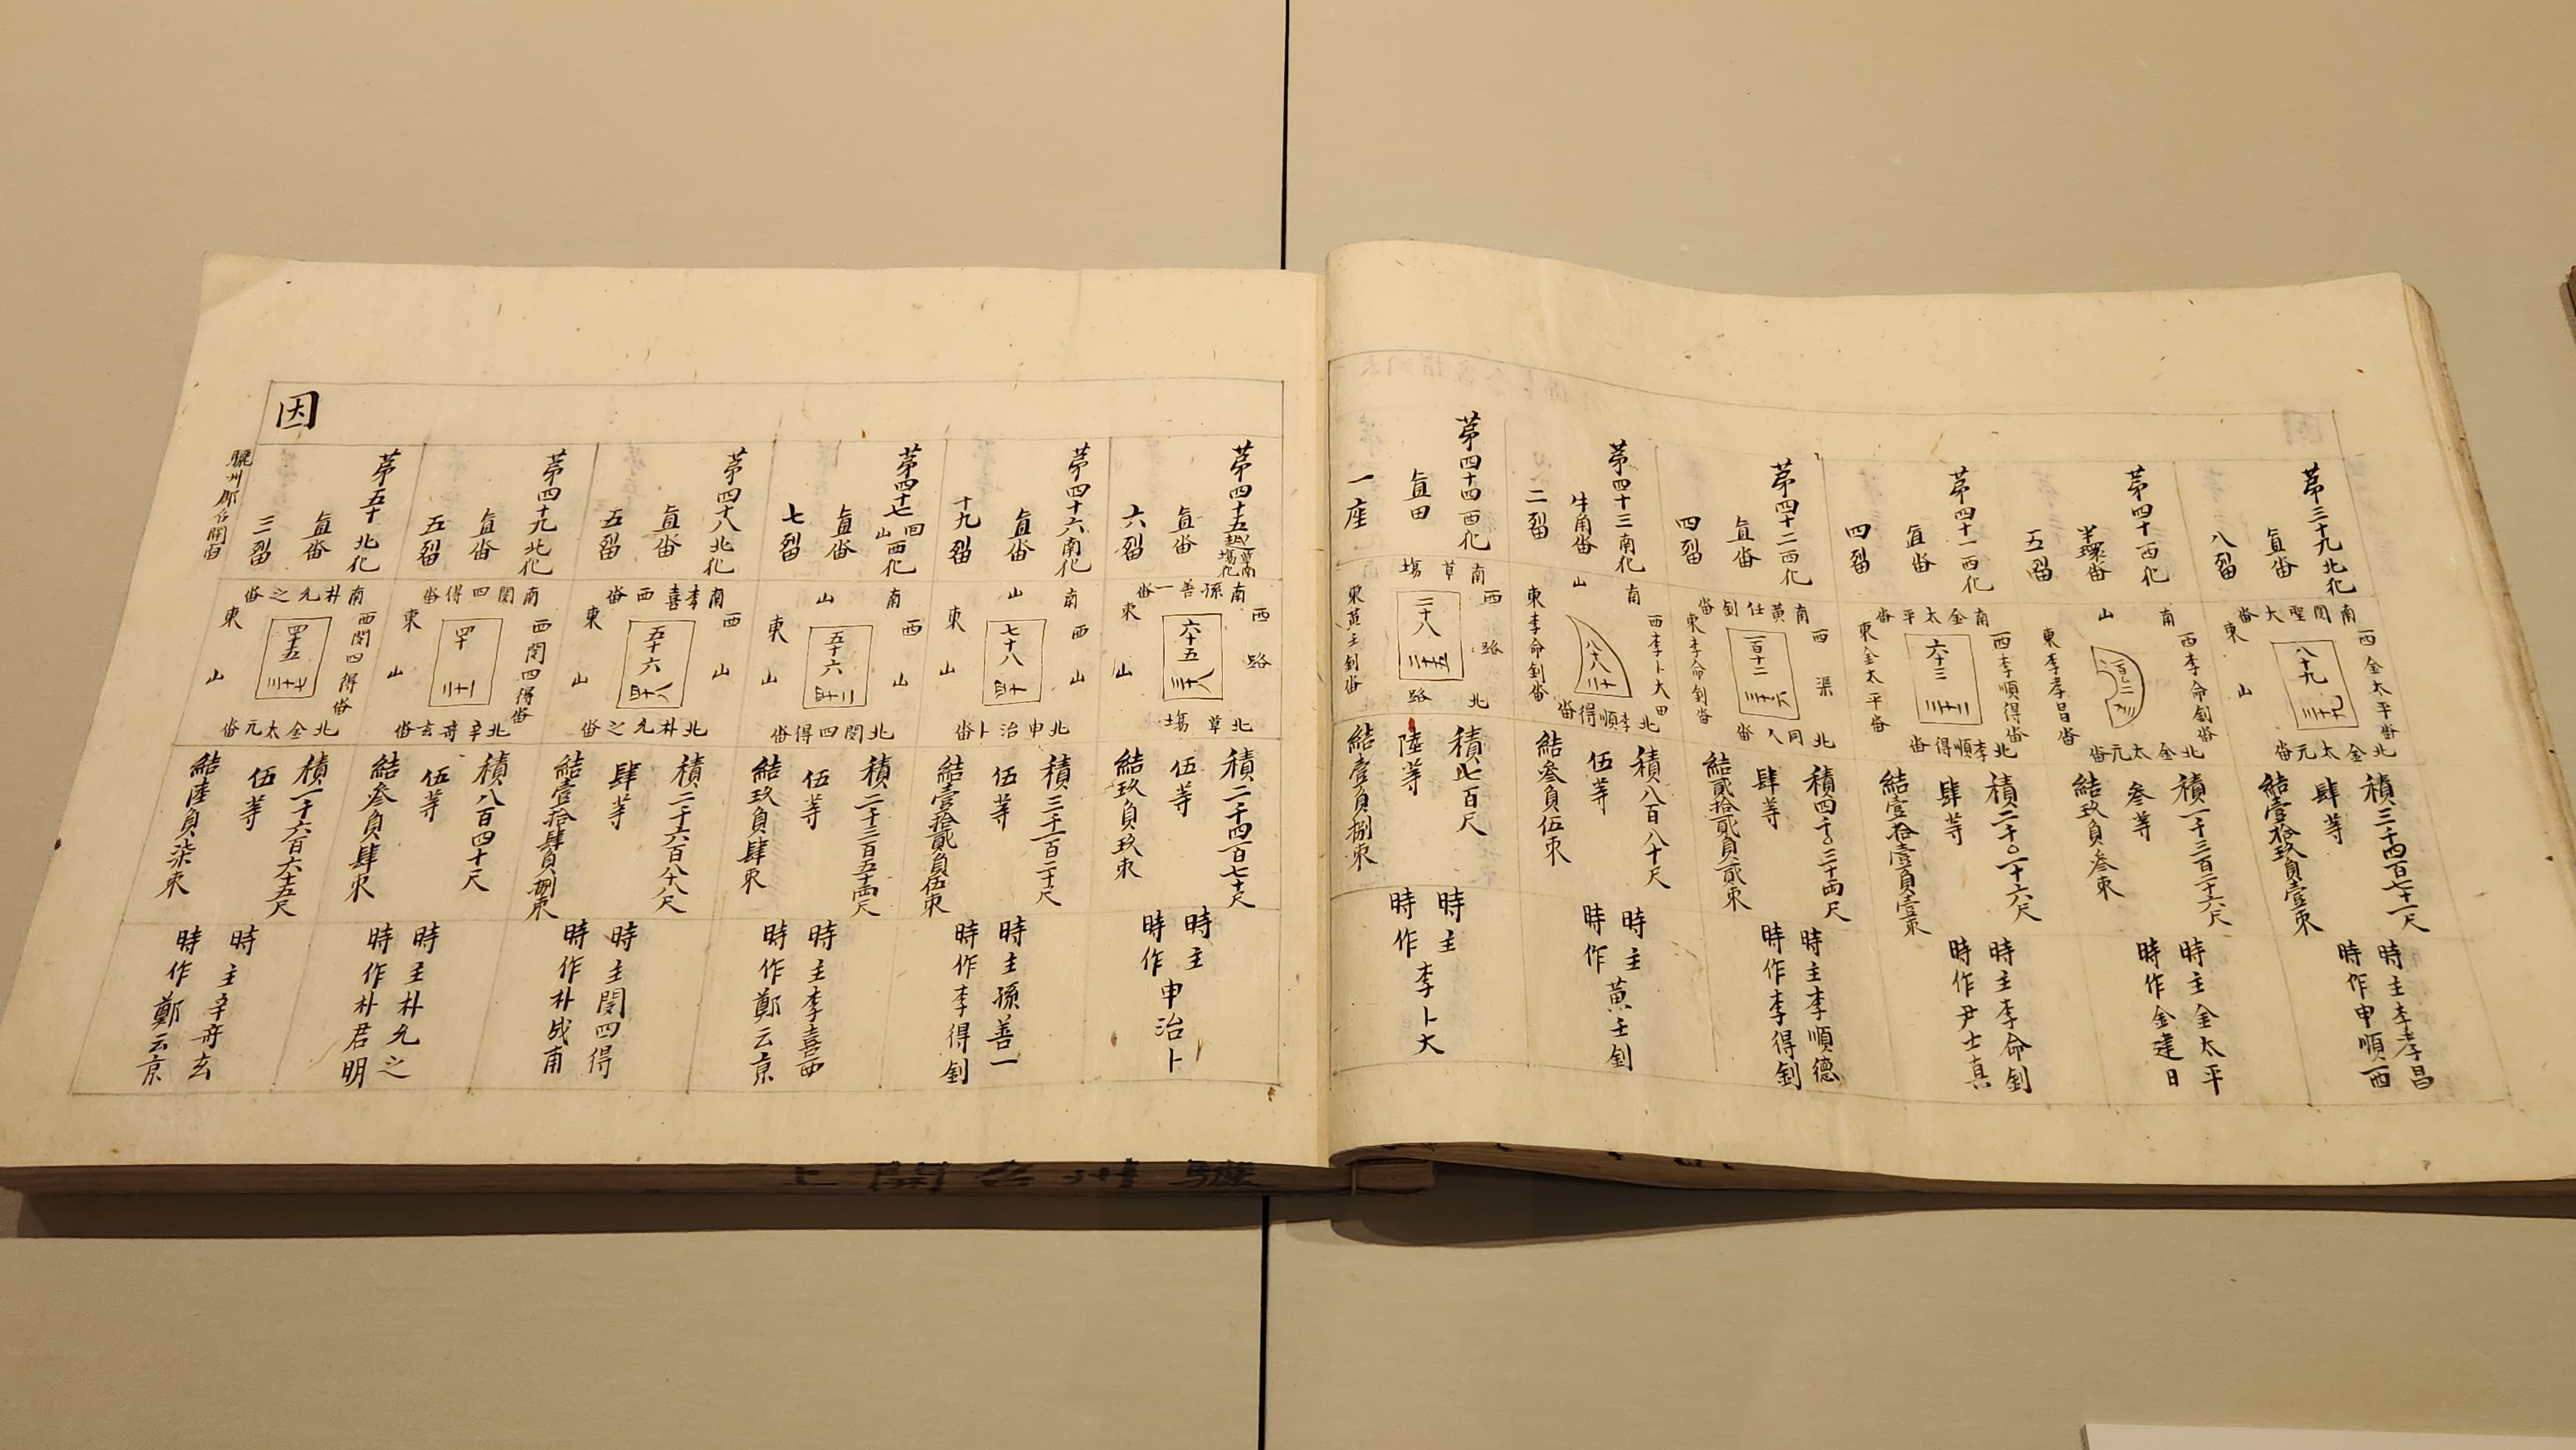 第三十九北化
直畓
八
南閔聖大畓
西金太平畓
八十九
三十九
東山
北金太元畓
積三千四百七十一尺
肆等
結壹拾玖負壹束
時主李孝昌
時作申順西
第四十西化
半環畓
五
南山
西李命釗畓
百二
十三
東李孝昌畓
北金太元畓
積一千三百二十六尺
參等
結玖負參束
時主金太平
時作金建日
第四十一西化
直畓
四
南金太平畓
西李順得畓
六十三
三十二
東金太平畓
北李順得畓
積二千〇一十六尺
肆等
結壹拾壹負壹束
時主李命釗
時作尹士真
第四十二西化
直畓
四
南黃任釗畓
西渠
一百十二
三十六
東李命釗畓
北同人畓
積四千〇三十兩尺
肆等
結貳拾貳負貳束
時主李順德
時作李得釗
第四十三南化
牛角畓
二
南山
西李卜大田
八十八
二十
東李命釗畓
北李順得畓
積八百八十尺
伍等
結參負伍束
時主
時作
黃壬釗
第四十四西化
直田
一座
南草塲
西路
二十八
二十五
東黃壬釗畓
北路
積七百尺
陸等
結壹負捌束
時主
時作
李卜大
因
第四十五越草塲南化
直畓
六
南孫善一畓
西路
六十五
三十八
東山
北草塲
積二千四百七十尺
伍等
結玖負玖束
時主
時作
申治卜
第四十六南化
直畓
十九
南山
西山
七十八
四十
東山
北申治卜畓
積三千一百二十尺
伍等
結壹拾貳負伍束
時主孫善一
時作李得釗
第四十七回山西化
直畓
七
南山
西山
五十六
四十二
東山
北閔四得畓
積二千三百五十兩尺
伍等
結玖負肆束
時主李喜西
時作鄭云京
第四十八北化
直畓
五
南李喜西畓
西山
五十六
四十八
東山
北朴允之畓
積二千六百八十八尺
肆等
結壹拾肆負捌束
時主閔四得
時作朴成甫
第四十九北化
直畓
五
南閔四得畓
西閔四得畓
四十
二十一
東山
北辛奇玄畓
積八百四十尺
伍等
結參負肆束
時主朴允之
時作朴君明
第五十北化
直畓
三
南朴允之畓
西閔四得畓
四十五
三十七
東山
北金太元畓
積一千六百六十五尺
伍等
結陸負柒束
時主辛奇玄
時作鄭云京
驪州郡召開面
驪州召開上